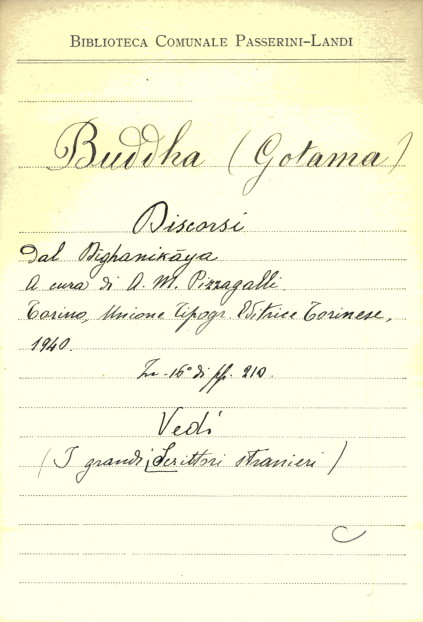 BIBLIOTECA COMUNALE PASSERINI-LANDI
Buddha (Gotama)
Discorsi
dal Dighanikāya
A cura di A. M. Pizzagalli.
Torino, Unione Tipogr. Editrice Torinese,
1940.
In-16° di pp. 210.
Vedi
(I grandi Scrittori stranieri)